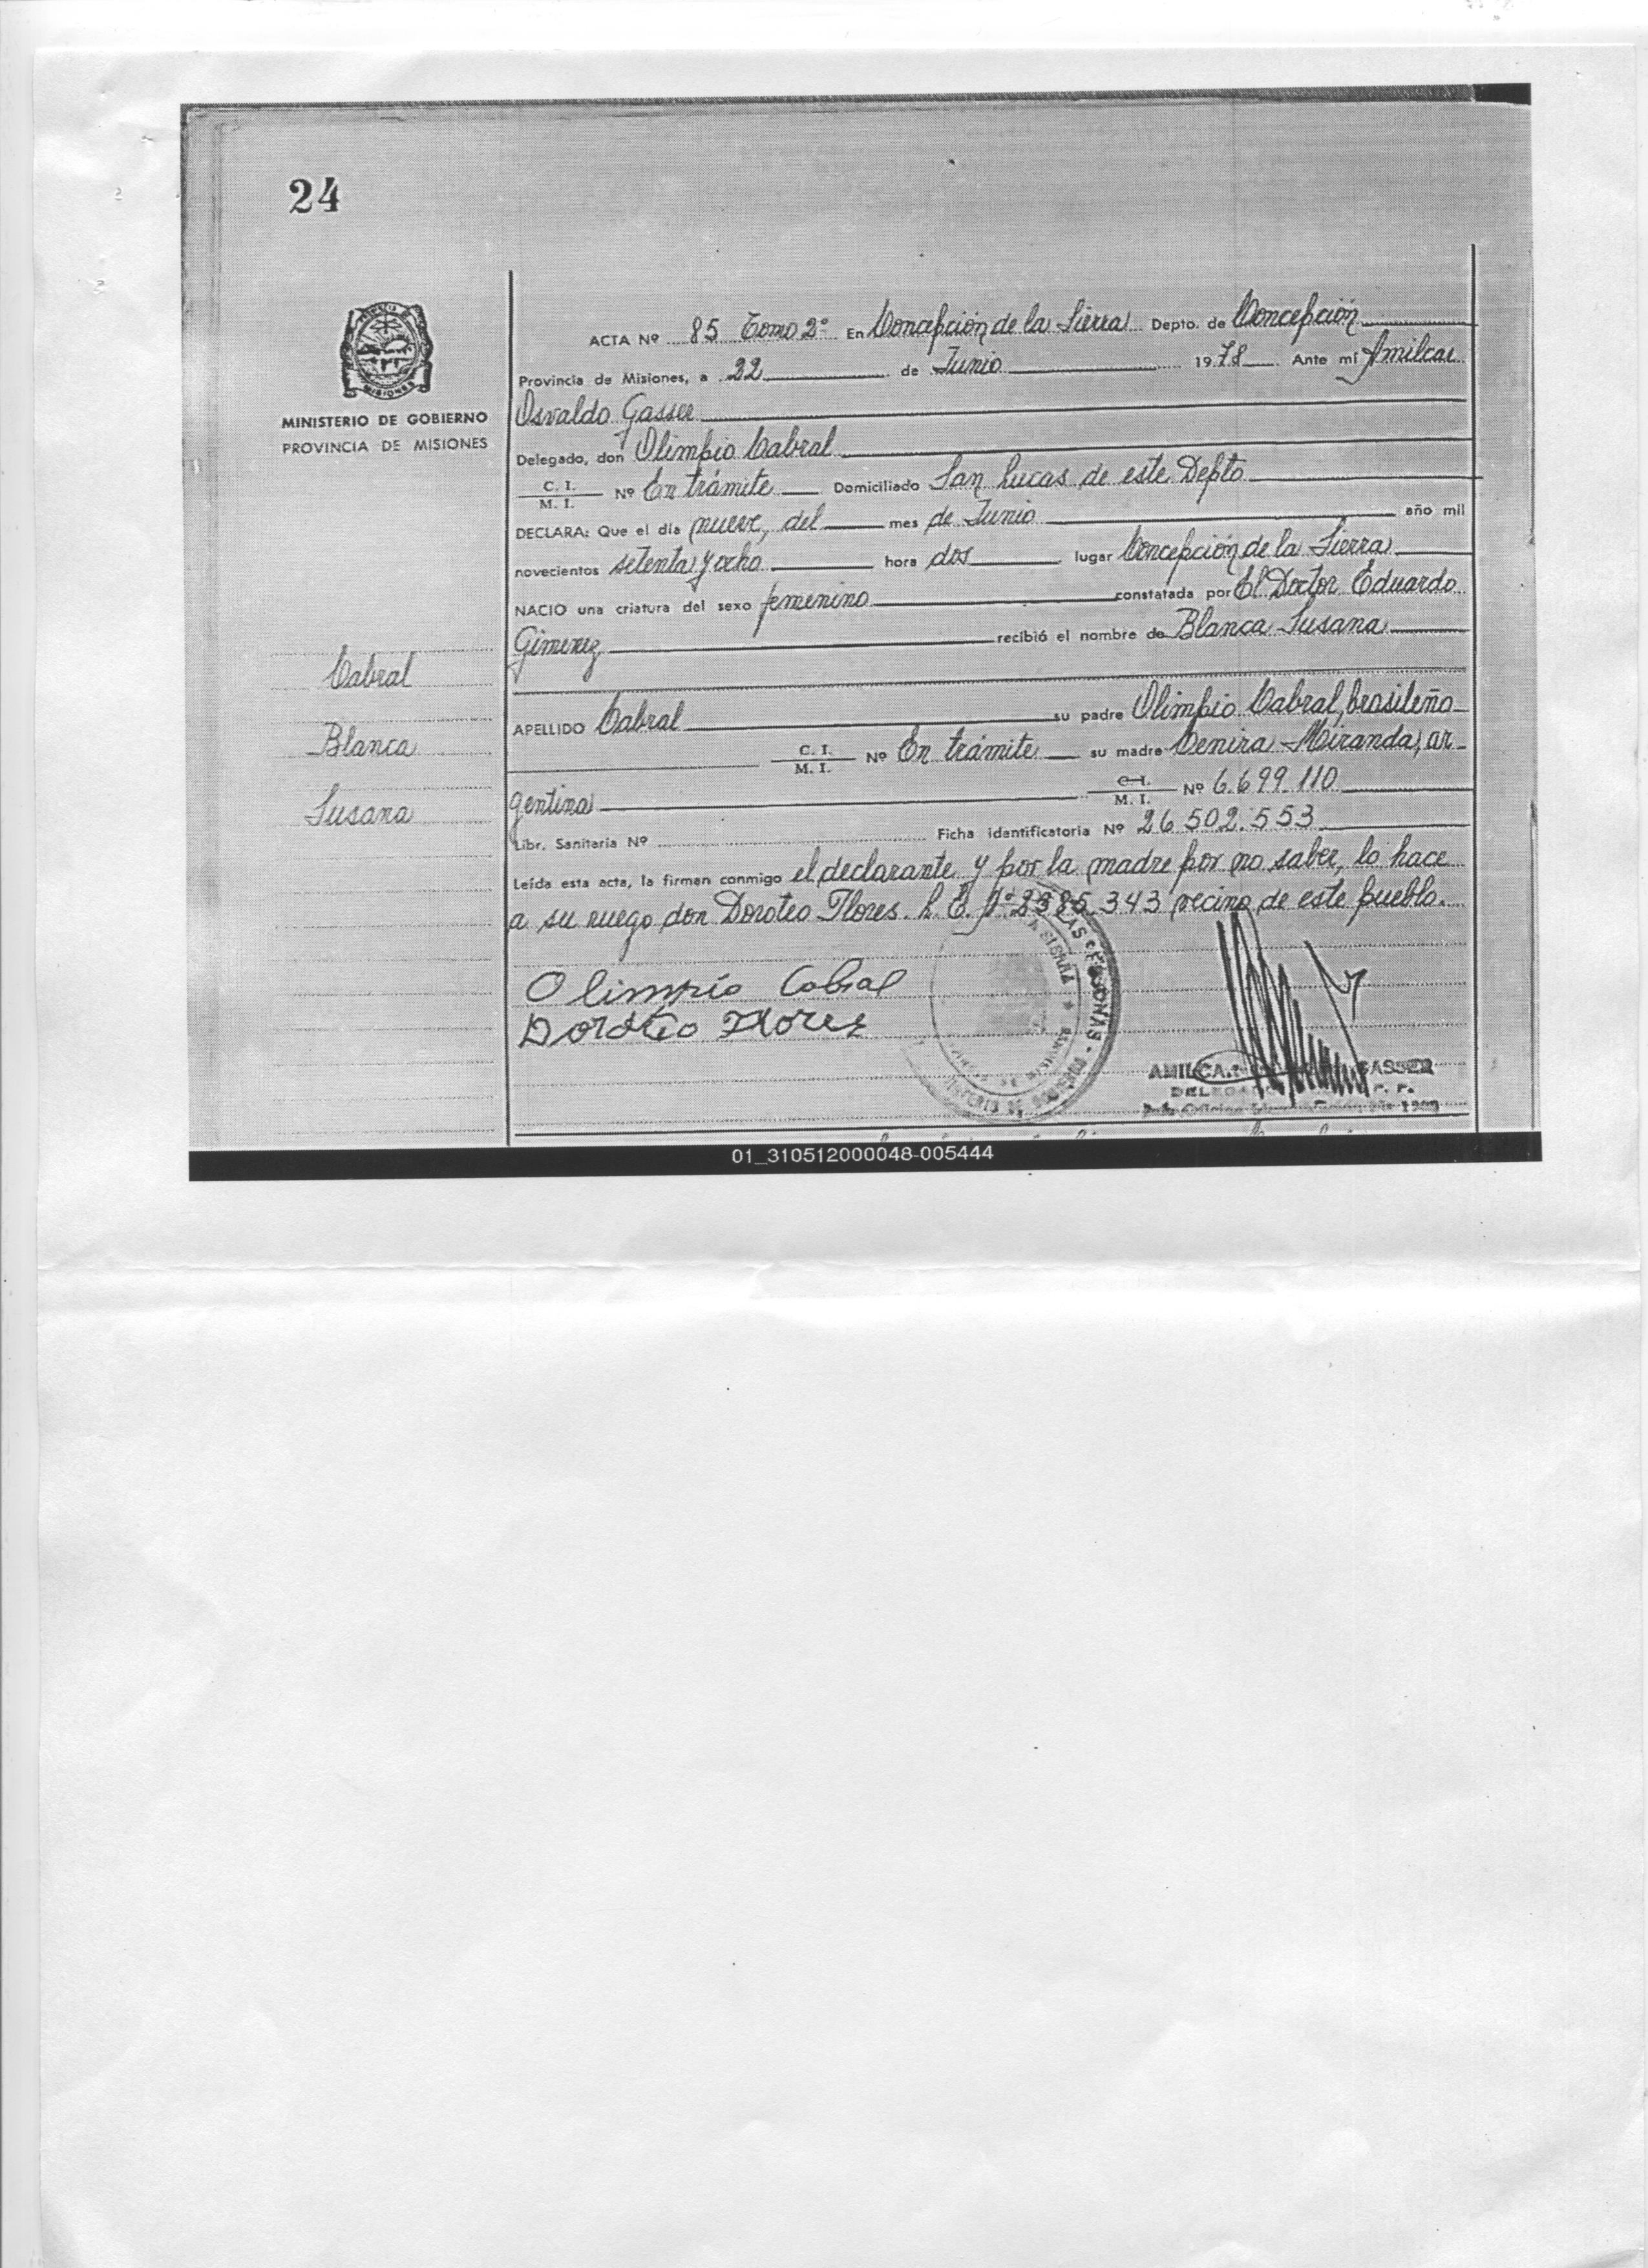 24
MINISTERIO DE GOBIERNO
PROVINCIA DE MISIONES
Cabral
Blanca
Susana
ACTA Nº 85 Tomo 2º En Concepción de la Sierra Depto. de Concepción
Provincia de Misiones, a 22 de Junio 1978 Ante mí Amilcar
Osvaldo Gasser
Delegado, don Olimpio Cabral
C. I. / M. I. Nº En trámite Domiciliado San Lucas de este Depto
DECLARA: Que el día nueve, del mes de Junio año mil
novecientos setenta y ocho hora dos lugar Concepción de la Sierra
NACIO una criatura del sexo femenino constatada por El Doctor Eduardo
Gimenez recibió el nombre de Blanca Susana
APELLIDO Cabral su padre Olimpio Cabral, brasileño
C. I. / M. I. Nº En trámite su madre Cenira Miranda, ar-
gentina C. I. / M. I. Nº 6.699.110
Libr. Sanitaria Nº Ficha identificatoria Nº 26.502.553
Leída esta acta, la firman conmigo el declarante y por la madre por no saber, lo hace
a su ruego don Doroteo Flores. L. E. Nº 2385.343 vecino de este pueblo.
Olimpio Cabral
Doroteo Flores
GASSER
DELEGADO
01_310512000048-005444